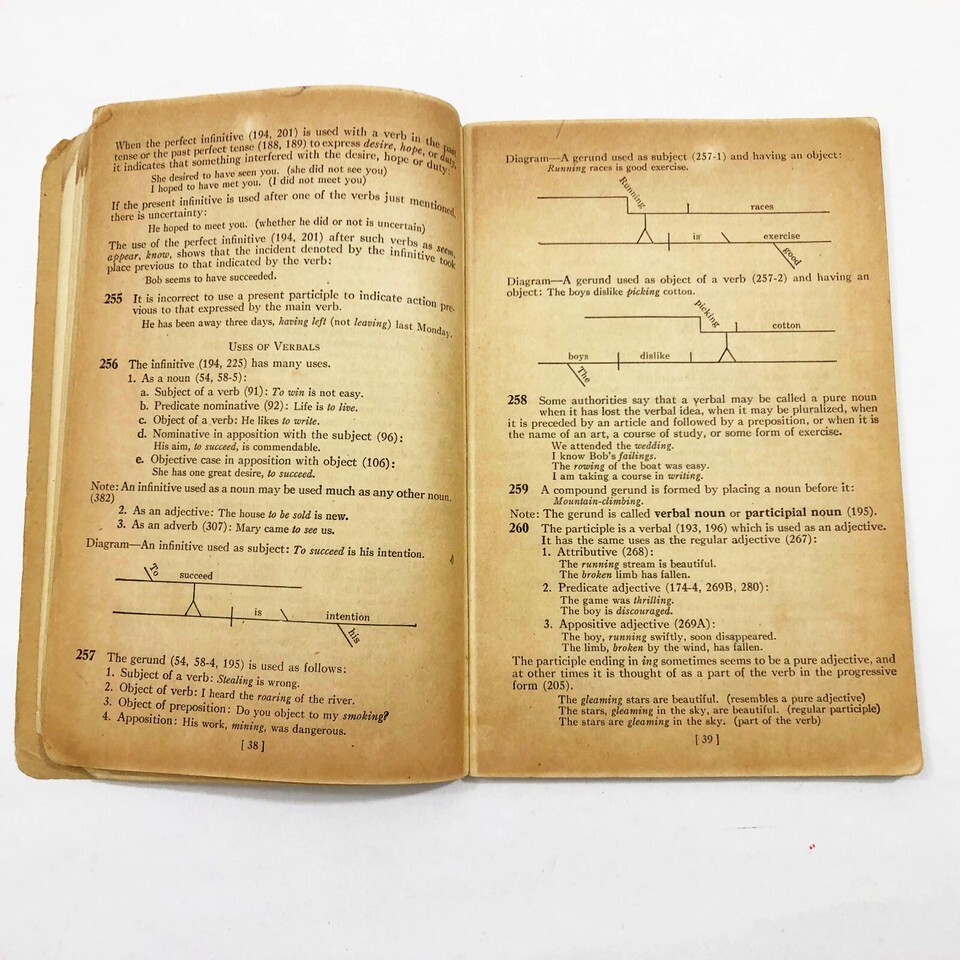 When the perfect infinitive (194, 201) is used with a verb in the past
tense or the past perfect tense (188, 189) to express desire, hope, or duty,
it indicates that something interfered with the desire, hope or duty:
She desired to have seen you. (she did not see you)
I hoped to have met you. (I did not meet you)
If the present infinitive is used after one of the verbs just mentioned,
there is uncertainty:
He hoped to meet you. (whether he did or not is uncertain)
The use of the perfect infinitive (194, 201) after such verbs as seem,
appear, know, shows that the incident denoted by the infinitive took
place previous to that indicated by the verb:
Bob seems to have succeeded.
255 It is incorrect to use a present participle to indicate action pre-
vious to that expressed by the main verb.
He has been away three days, having left (not leaving) last Monday.
USES OF VERBALS
256 The infinitive (194, 225) has many uses.
1. As a noun (54, 58-5):
a. Subject of a verb (91): To win is not easy.
b. Predicate nominative (92): Life is to live.
c. Object of a verb: He likes to write.
d. Nominative in apposition with the subject (96):
His aim, to succeed, is commendable.
e. Objective case in apposition with object (106):
She has one great desire, to succeed.
Note: An infinitive used as a noun may be used much as any other noun.
(382)
2. As an adjective: The house to be sold is new.
3. As an adverb (307): Mary came to see us.
Diagram—An infinitive used as subject: To succeed is his intention.
To
succeed
is
intention
his
257 The gerund (54, 58-4, 195) is used as follows:
1. Subject of a verb: Stealing is wrong.
2. Object of verb: I heard the roaring of the river.
3. Object of preposition: Do you object to my smoking?
4. Apposition: His work, mining, was dangerous.
[ 38 ]
Diagram—A gerund used as subject (257-1) and having an object:
Running races is good exercise.
Running
races
is
exercise
good
Diagram—A gerund used as object of a verb (257-2) and having an
object: The boys dislike picking cotton.
picking
cotton
boys
dislike
The
258 Some authorities say that a verbal may be called a pure noun
when it has lost the verbal idea, when it may be pluralized, when
it is preceded by an article and followed by a preposition, or when it is
the name of an art, a course of study, or some form of exercise.
We attended the wedding.
I know Bob's failings.
The rowing of the boat was easy.
I am taking a course in writing.
259 A compound gerund is formed by placing a noun before it:
Mountain-climbing.
Note: The gerund is called verbal noun or participial noun (195).
260 The participle is a verbal (193, 196) which is used as an adjective.
It has the same uses as the regular adjective (267):
1. Attributive (268):
The running stream is beautiful.
The broken limb has fallen.
2. Predicate adjective (174-4, 269B, 280):
The game was thrilling.
The boy is discouraged.
3. Appositive adjective (269A):
The boy, running swiftly, soon disappeared.
The limb, broken by the wind, has fallen.
The participle ending in ing sometimes seems to be a pure adjective, and
at other times it is thought of as a part of the verb in the progressive
form (205).
The gleaming stars are beautiful. (resembles a pure adjective)
The stars, gleaming in the sky, are beautiful. (regular participle)
The stars are gleaming in the sky. (part of the verb)
[ 39 ]